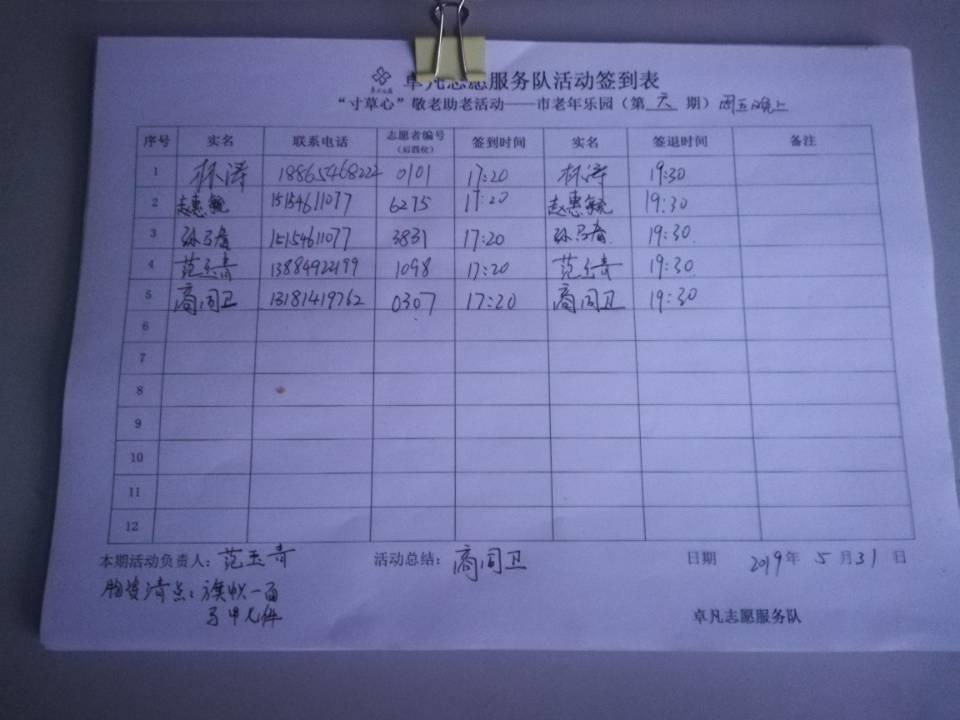 卓凡志愿服务队活动签到表
“寸草心”敬老助老活动——市老年乐园（第 六 期）周五晚上
序号 实名 联系电话 志愿者编号（后四位） 签到时间 实名 签退时间 备注
1 林涛 18865468222 0101 17:20 林涛 19:30
2 赵惠毓 15154611077 6275 17:20 赵惠毓 19:30
3 15154611077 3831 17:20 19:30
4 范玉青 13884922199 1098 17:20 范玉青 19:30
5 商同卫 13181419762 0307 17:20 商同卫 19:30
6
7
8
9
10
11
12
本期活动负责人：范玉青 活动总结：商同卫 日期 2019年 5月31日
物资清点：旗帜一面
马甲九件
卓凡志愿服务队